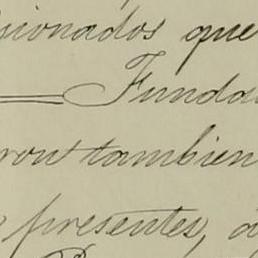 sionados que
Funda
ron tambien
presentes, a